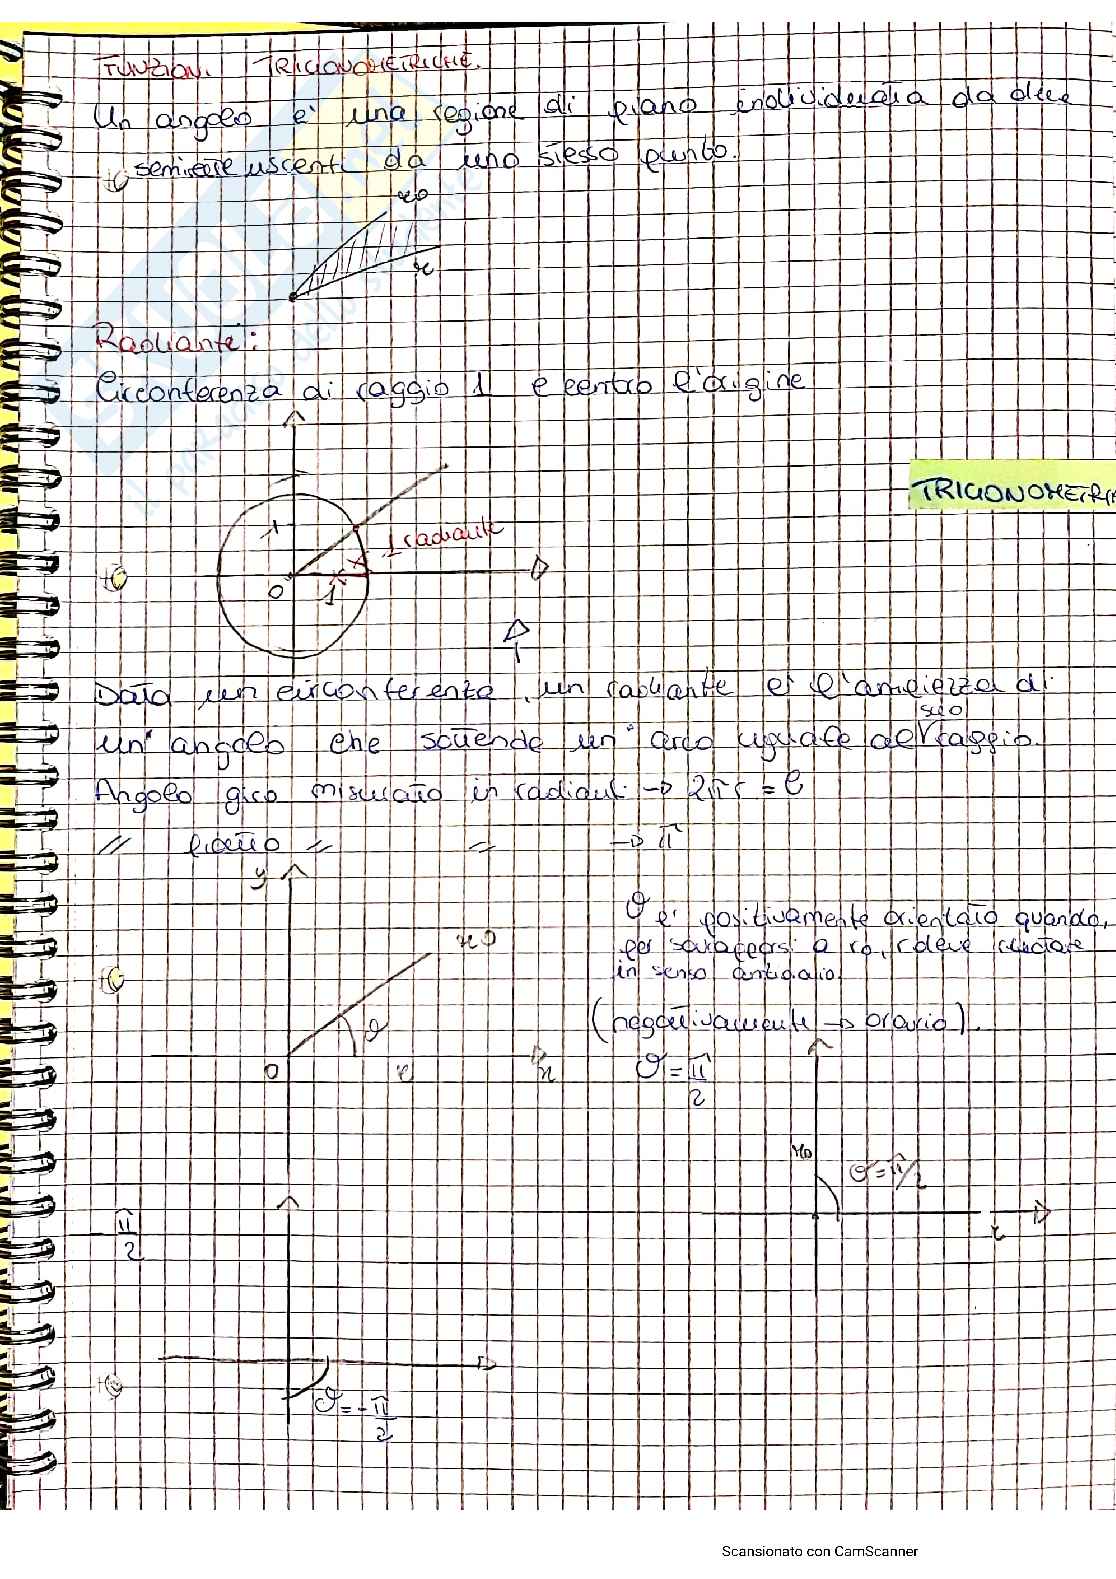 FUNZIONI TRIGONOMETRICHE.
Un angolo è una regione di piano individuata da due
semirette uscenti da uno stesso punto.
r0
r
Radiante:
Circonferenza di raggio 1 e centro l'origine
TRIGONOMETRIA
1
1 radiante
O
1
Data un circonferenza, un radiante è l'ampiezza di
un' angolo che sottende un' arco uguale al suo raggio.
Angolo giro misurato in radianti → 2πr = l
// piatto = = → π
y
r0
ϑ
O
r
x
ϑ è positivamente orientato quando,
per sovrapporsi a r0, r deve ruotare
in senso antiorario.
(negativamente → orario).
ϑ = π/2
r0
ϑ = π/2
r
- π/2
ϑ = - π/2
Scansionato con CamScanner